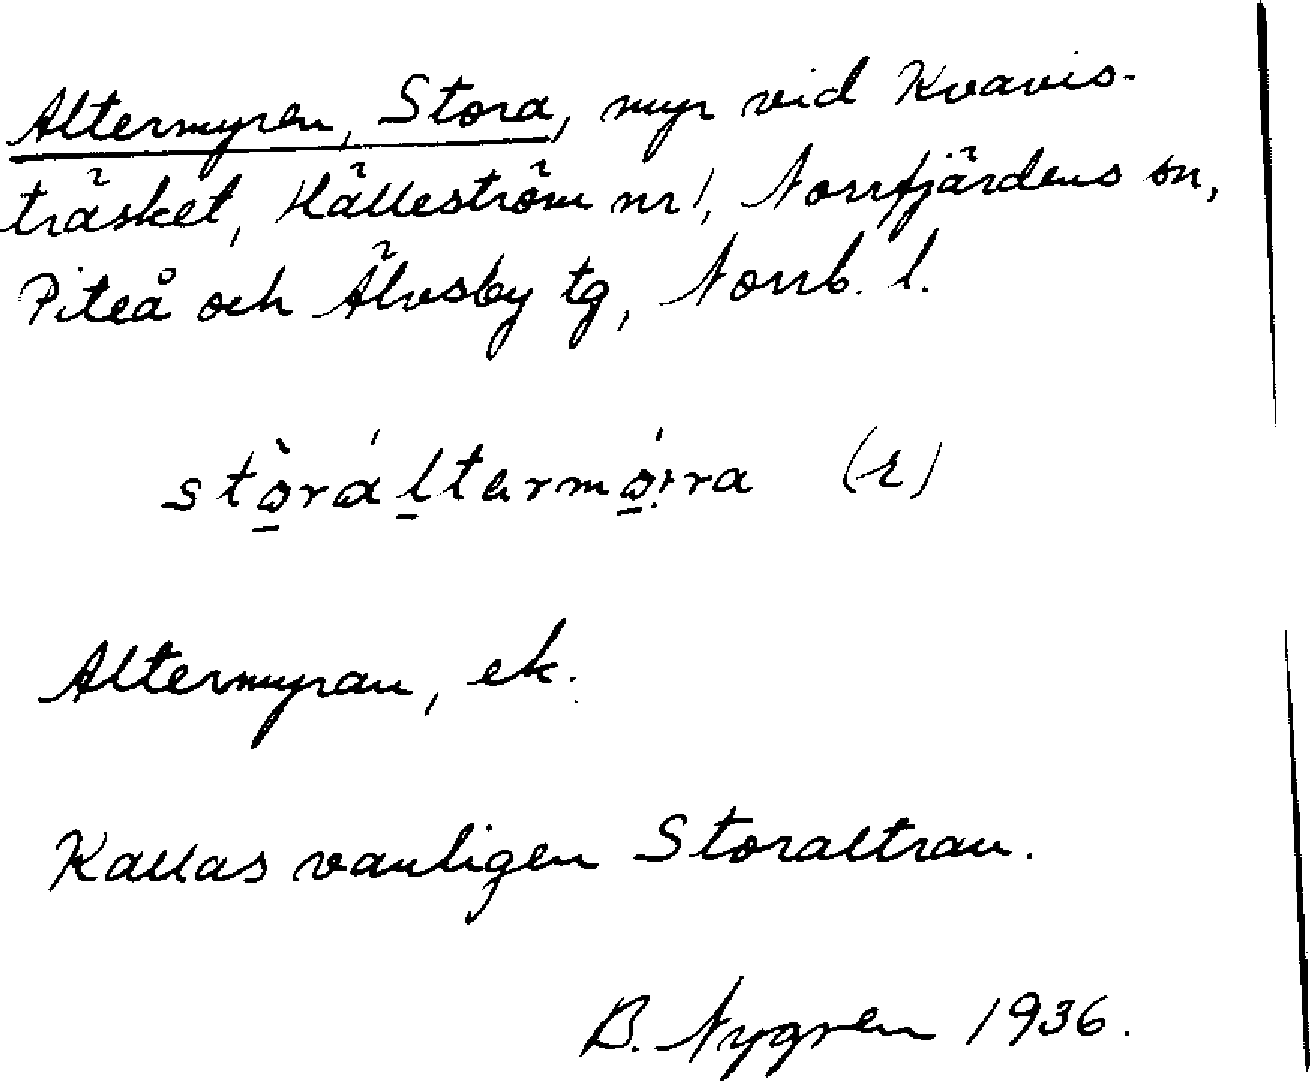 Altermyren, Stora, myr vid Kvavis-
träsket, Hälleström nr 1, Norrfjärdens sn,
Piteå och Älvsby tg, Norrb. l.
(r)
Altermyran, ek.
Kallas vanligen Storaltran.
B. Nygren 1936.